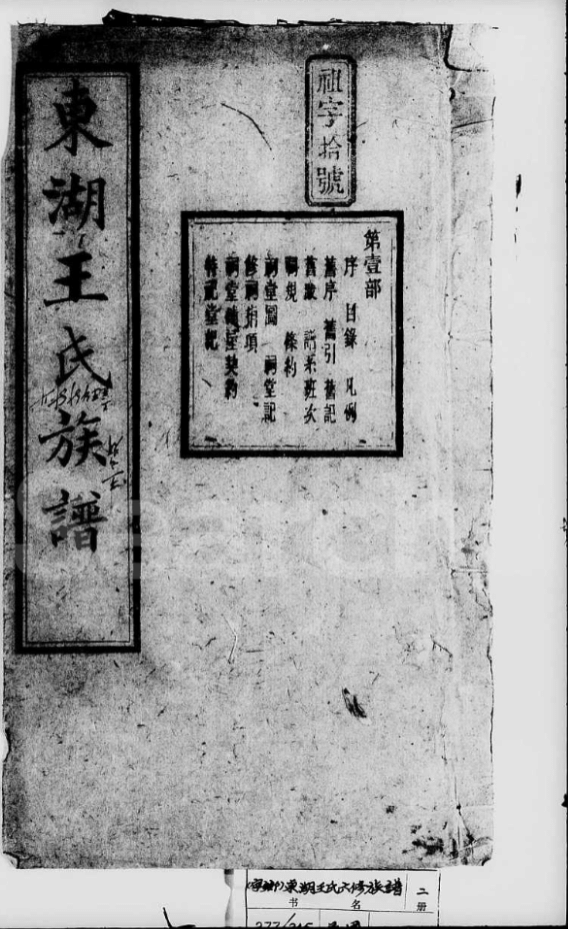 東湖王氏族譜
祖字拾號
第壹部
序 目錄 凡例
舊序 舊引 舊記
舊 派班次
規 條約
祠堂圖 祠堂記
修祠捐項
祠堂 屋契約
祠堂記
(寧鄉)東湖王氏六修族譜 二
书名 册
277/215
Search